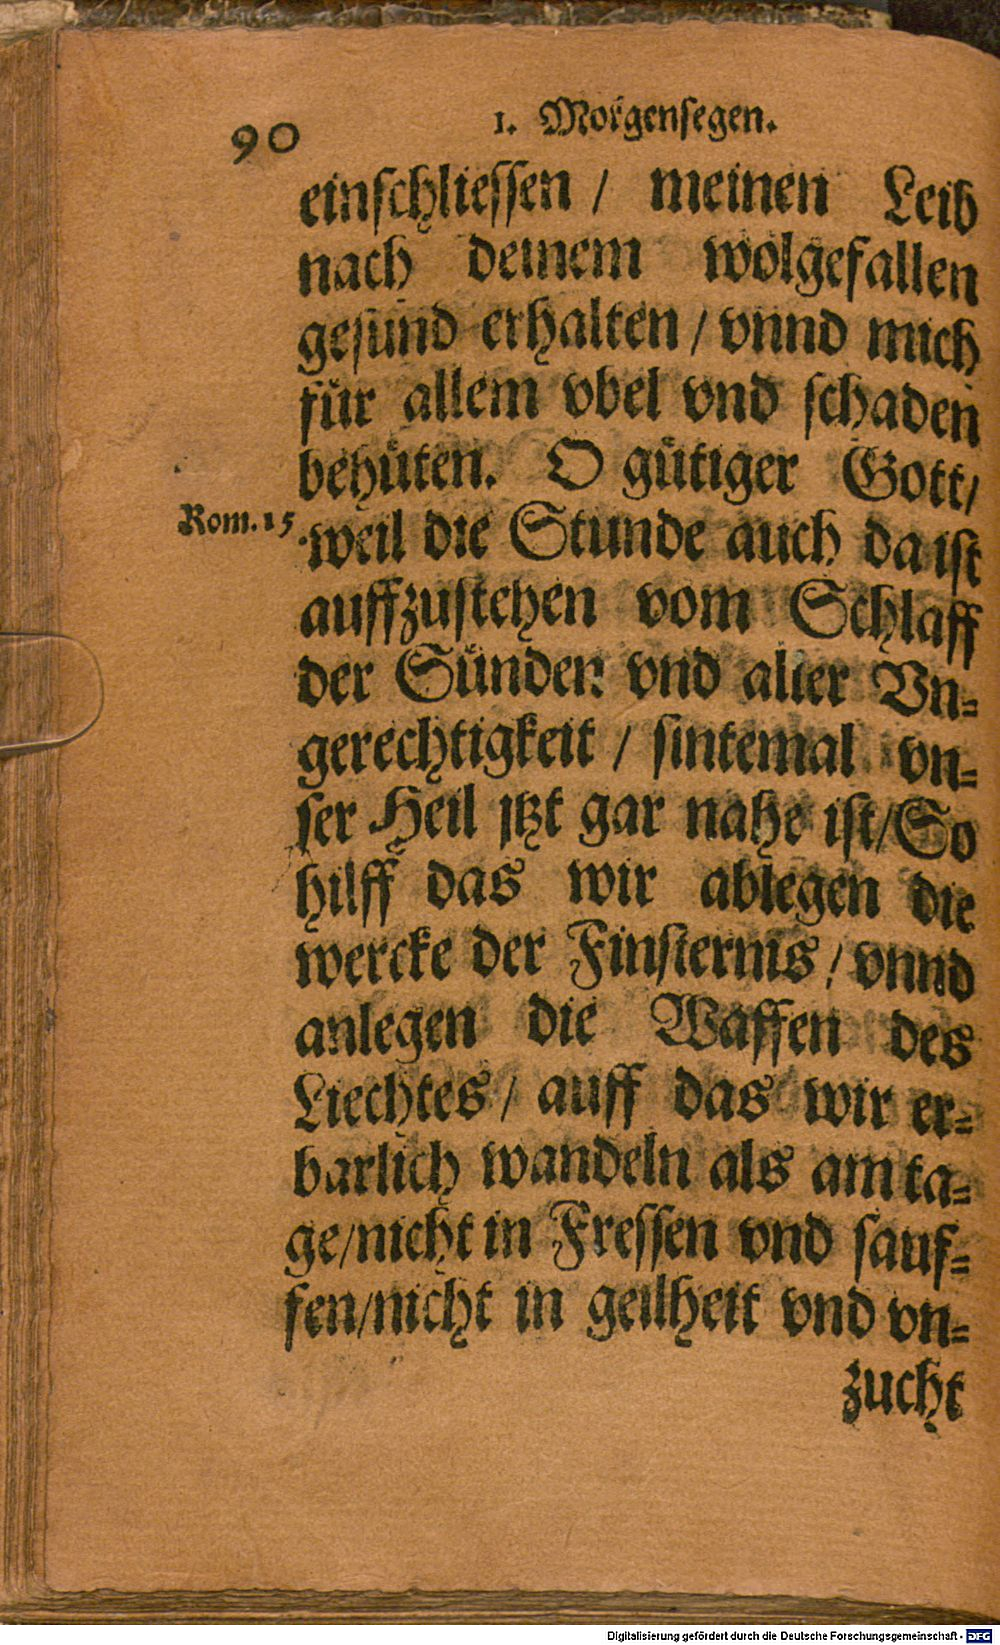 90
1. Morgensegen.
einschliessen / meinen Leib
nach deinem wolgefallen
gesund erhalten / vnnd mich
für allem vbel vnd schaden
behüten. O gütiger Gott /
Rom. 15.
weil die Stunde auch da ist
auffzustehen vom Schlaff
der Sünden vnd aller Vn-
gerechtigkeit / sintemal vn-
ser Heil jtzt gar nahe ist / So
hilff das wir ablegen die
wercke der Finsternis / vnnd
anlegen die Waffen des
Liechtes / auff das wir er-
barlich wandeln als am ta-
ge / nicht in Fressen vnd sauf-
fen / nicht in geilheit vnd vn-
zucht
Digitalisierung gefördert durch die Deutsche Forschungsgemeinschaft - DFG